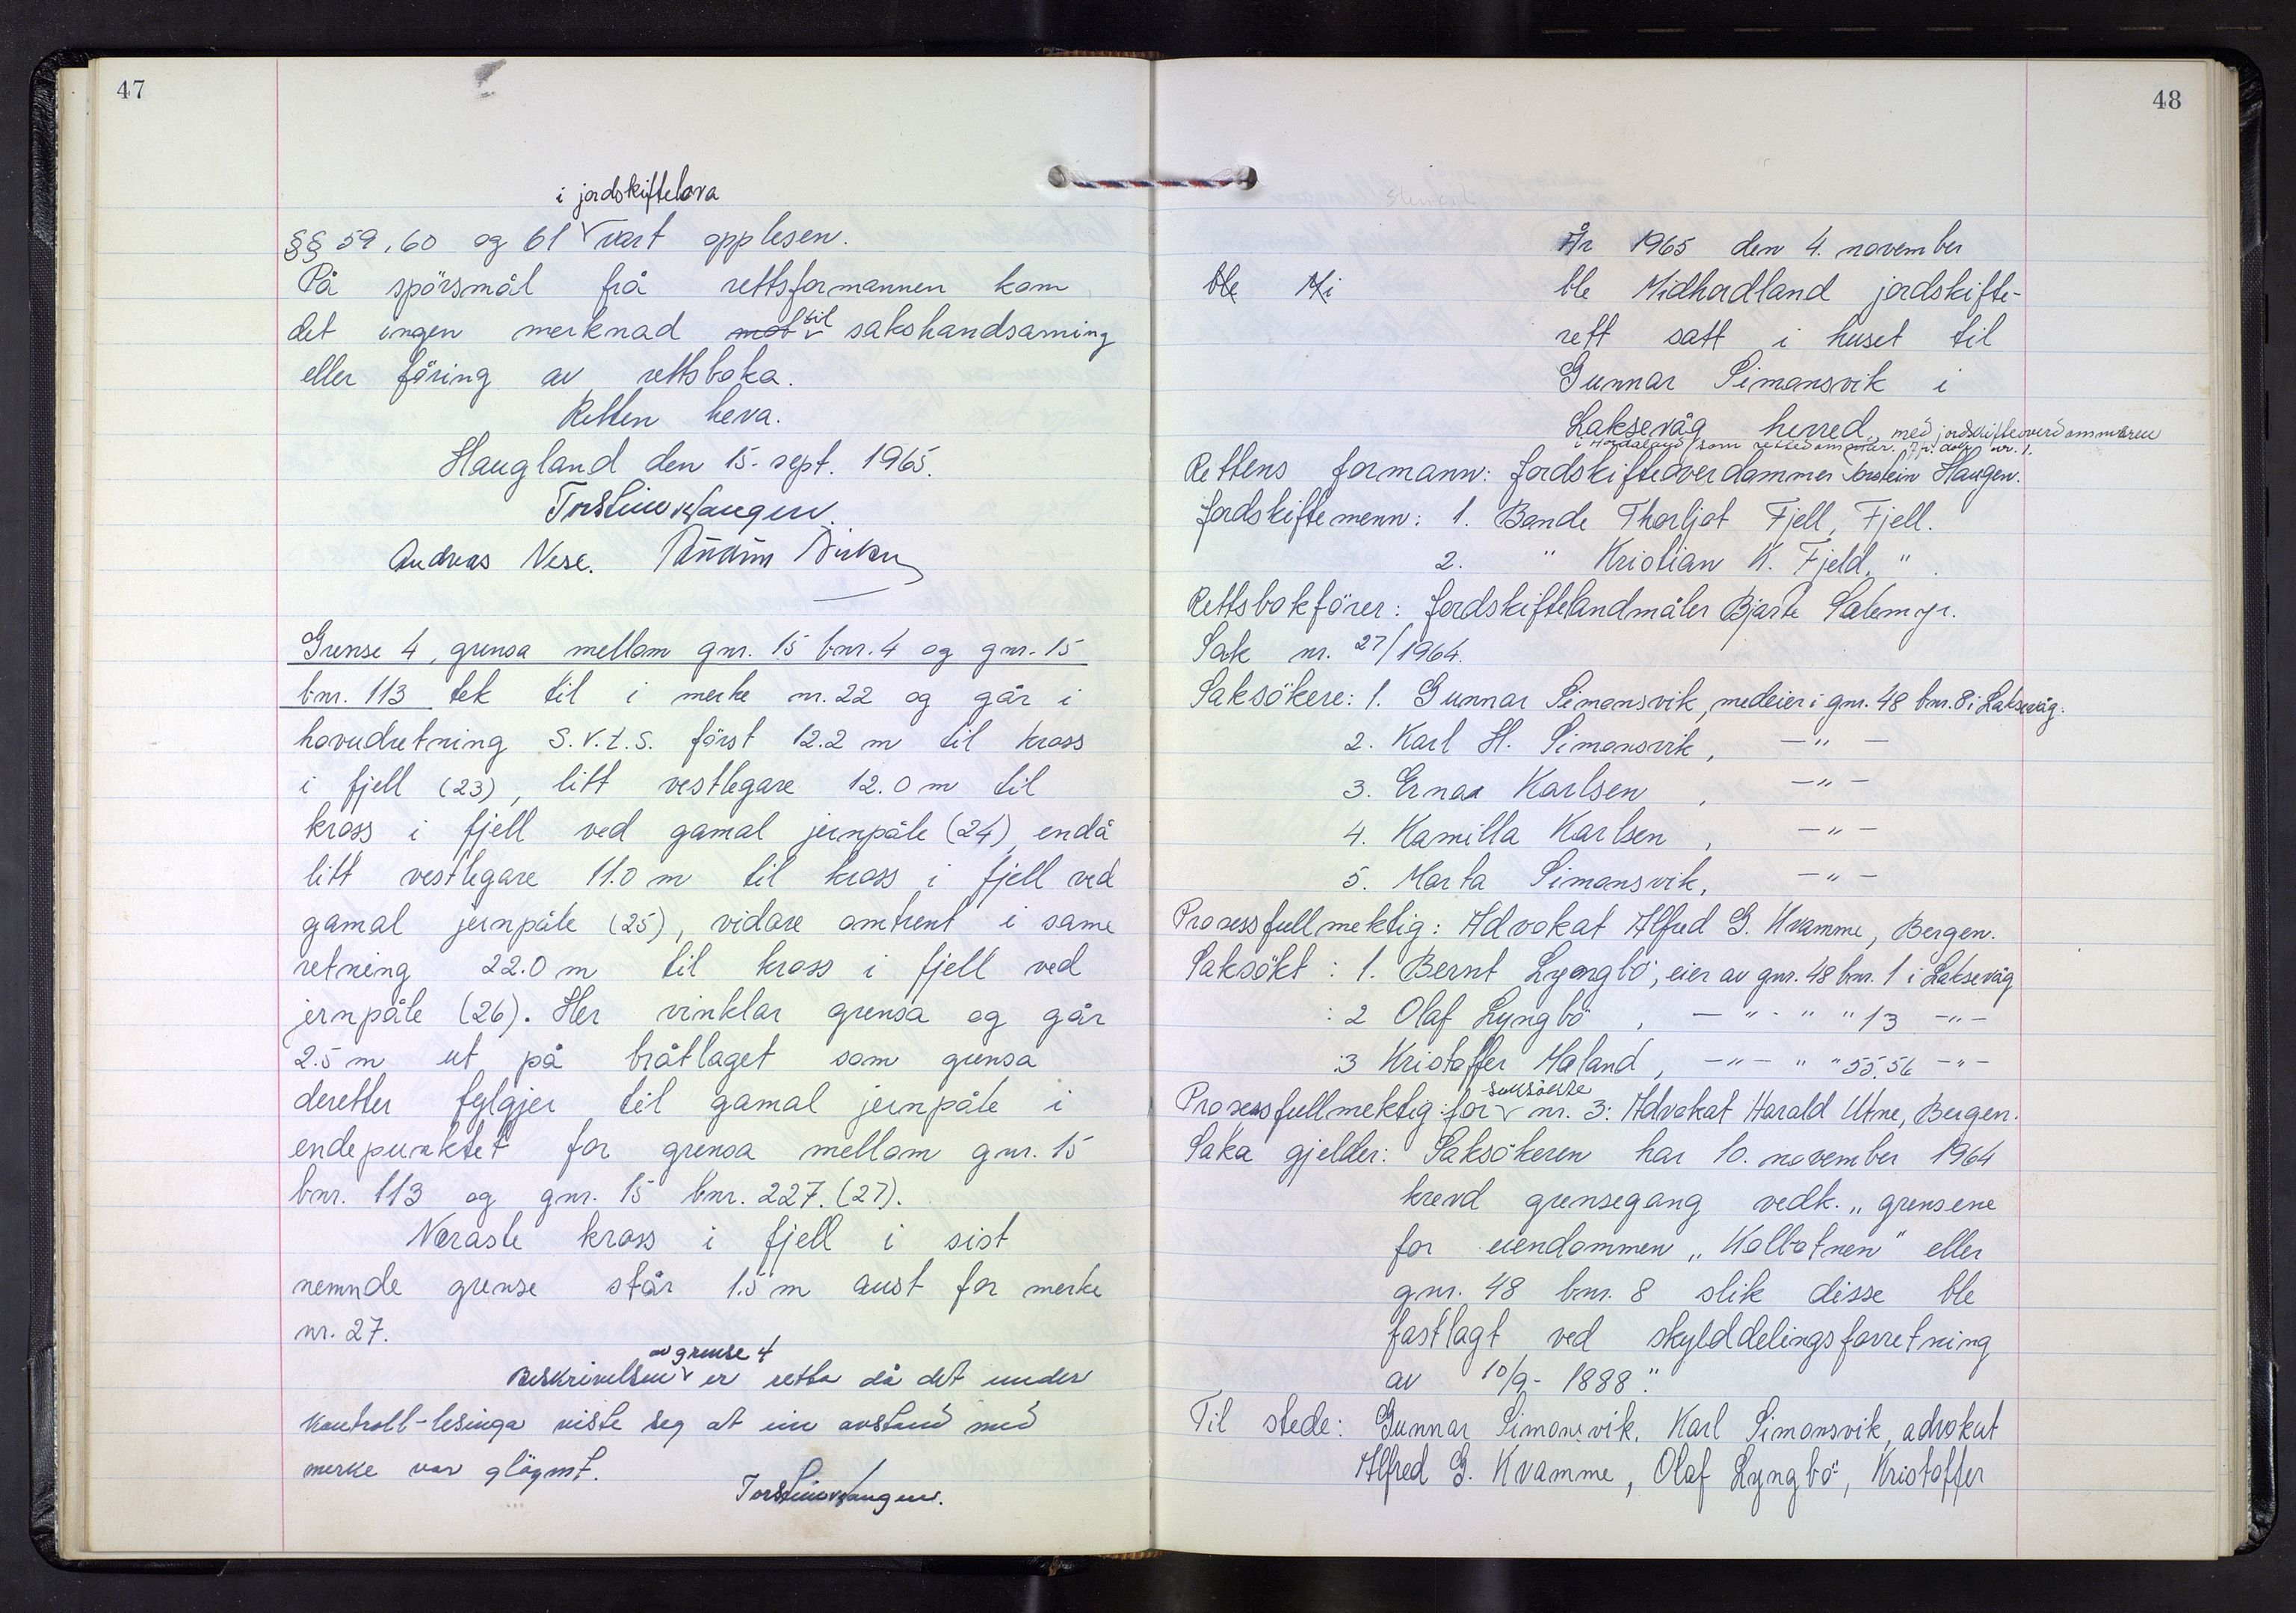 47
i jordskiftelova
§§ 59, 60 og 61 vart opplesen.
På spörsmål frå rettsformannen kom
det ingen merknad mot til sakshandsaming
eller föring av rettsboka.
Retten heva.
Haugland den 15. sept. 1965.
Torstein Haugen.
Andreas Nese.
Grense 4, grensa mellom gnr. 15 bnr. 4 og gnr. 15
bnr. 113 tek til i merke nr. 22 og går i
hovudretning S.V.t.S. först 12.2 m til kross
i fjell (23), litt vestlegare 12.0 m til
kross i fjell ved gamal jernpåle (24), endå
litt vestlegare 11.0 m til kross i fjell ved
gamal jernpåle (25), vidare omtrent i same
retning 22.0 m til kross i fjell ved
jernpåle (26). Her vinklar grensa og går
2.5 m ut på bråtlaget som grensa
deretter fylgjer til gamal jernpåle i
endepunktet for grensa mellom gnr. 15
bnr. 113 og gnr. 15 bnr. 227. (27).
Næraste kross i fjell i sist
nemnde grense står 1.5 m aust for merke
nr. 27.
av grense 4
Beskrivelsen er retta då det under
kontroll-lesinga viste seg at ein avstand med
merke var glöymt.
Torstein Haugen.
48
År 1965 den 4. november
ble Mi ble Midhordland jordskifte-
rett satt i huset til
Gunnar Simonsvik i
Laksevåg herred, med jordskifteoverdommeren
i Hordaland som rettsformann.
Rettens formann: Jordskifteoverdommer Torstein Haugen.
Jordskiftemenn: 1. Bonde Thorljot Fjell, Fjell.
2. " Kristian K. Fjeld, "
Rettsbokförer: Jordskiftelandmåler Bjarte Sælemyr.
Sak nr. 27/1964.
Saksökere: 1. Gunnar Simonsvik, medeier i gnr. 48 bnr. 8 i Laksevåg.
2. Karl H. Simonsvik, —"—
3. Erna Karlsen, —"—
4. Kamilla Karlsen, —"—
5. Marta Simonsvik, —"—
Prosessfullmektig: Advokat Alfred G. Kvamme, Bergen.
Saksökt: 1. Bernt Lyngbö, eier av gnr. 48 bnr. 1 i Laksevåg
: 2 Olaf Lyngbö, — " - " " 13 —"—
:3 Kristoffer Haland, —"— " " 55.56 —"—
saksökte
Prosessfullmektig: for nr. 3: Advokat Harald Utne, Bergen.
Saka gjelder: Saksökeren har 10. november 1964
krevd grensegang vedk. „grensene
for eiendommen „Kolbotnen" eller
gnr. 48 bnr. 8 slik disse ble
fastlagt ved skylddelingsforretning
av 10/9- 1888."
Til stede: Gunnar Simonsvik, Karl Simonsvik, advokat
Alfred G. Kvamme, Olaf Lyngbö, Kristoffer